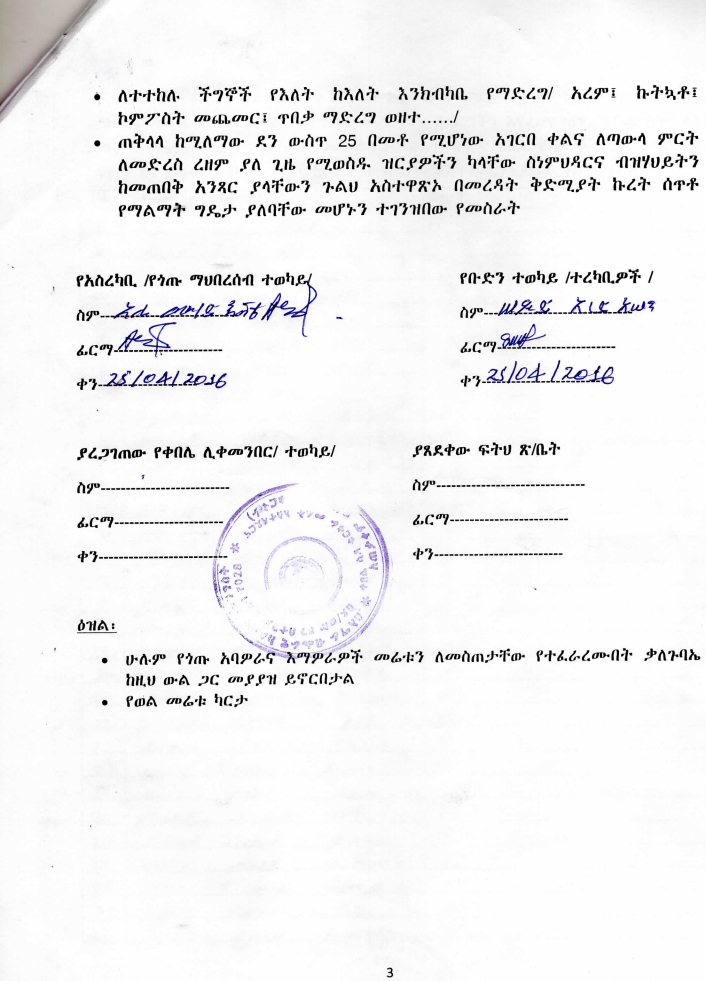 • ለተተከሉ ችግኞች የእለት ከእለት እንክብካቤ የማድረግ/ አረም፤ ኩትኳቶ፤
ኮምፖስት መጨመር፤ ጥበቃ ማድረግ ወዘተ....../
• ጠቅላላ ከሚለማው ደን ውስጥ 25 በመቶ የሚሆነው አገርበ ቀልና ለጣውላ ምርት
ለመድረስ ረዘም ያለ ጊዜ የሚወስዱ ዝርያዎችን ካላቸው ስነምህዳርና ብዝሃህይትን
ከመጠበቅ አንጻር ያላቸውን ጉልህ አስተዋጽኦ በመረዳት ቅድሚያት ኩረት ሰጥቶ
የማልማት ግዴታ ያለባቸው መሆኑን ተገንዝበው የመስራት
የአስረካቢ /የጎጡ ማህበረሰብ ተወካይ/
ስም
ፊርማ
ቀን 25/04/2016
የቡድን ተወካይ /ተረካቢዎች /
ስም
ፊርማ
ቀን 25/04/2016
ያረጋገጠው የቀበሌ ሊቀመንበር/ ተወካይ/
ስም----------------------------
ፊርማ------------------------
ቀን----------------------------
ያጸደቀው ፍትህ ጽ/ቤት
ስም--------------------------------
ፊርማ--------------------------
ቀን----------------------------
ዕዝል፡
• ሁሉም የጎጡ አባዎራና እማዎራዎች መሬቱን ለመስጠታቸው የተፈራረሙበት ቃለጉባኤ
ከዚህ ውል ጋር መያያዝ ይኖርበታል
• የወል መሬቱ ካርታ
3